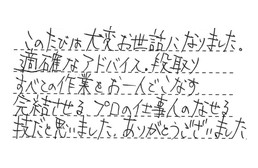 このたびは大変お世話になりました。
適確なアドバイス、段取り
すべての作業をお一人でこなす
完結させる、プロの仕事人のなせる
技だと思いました。ありがとうございました